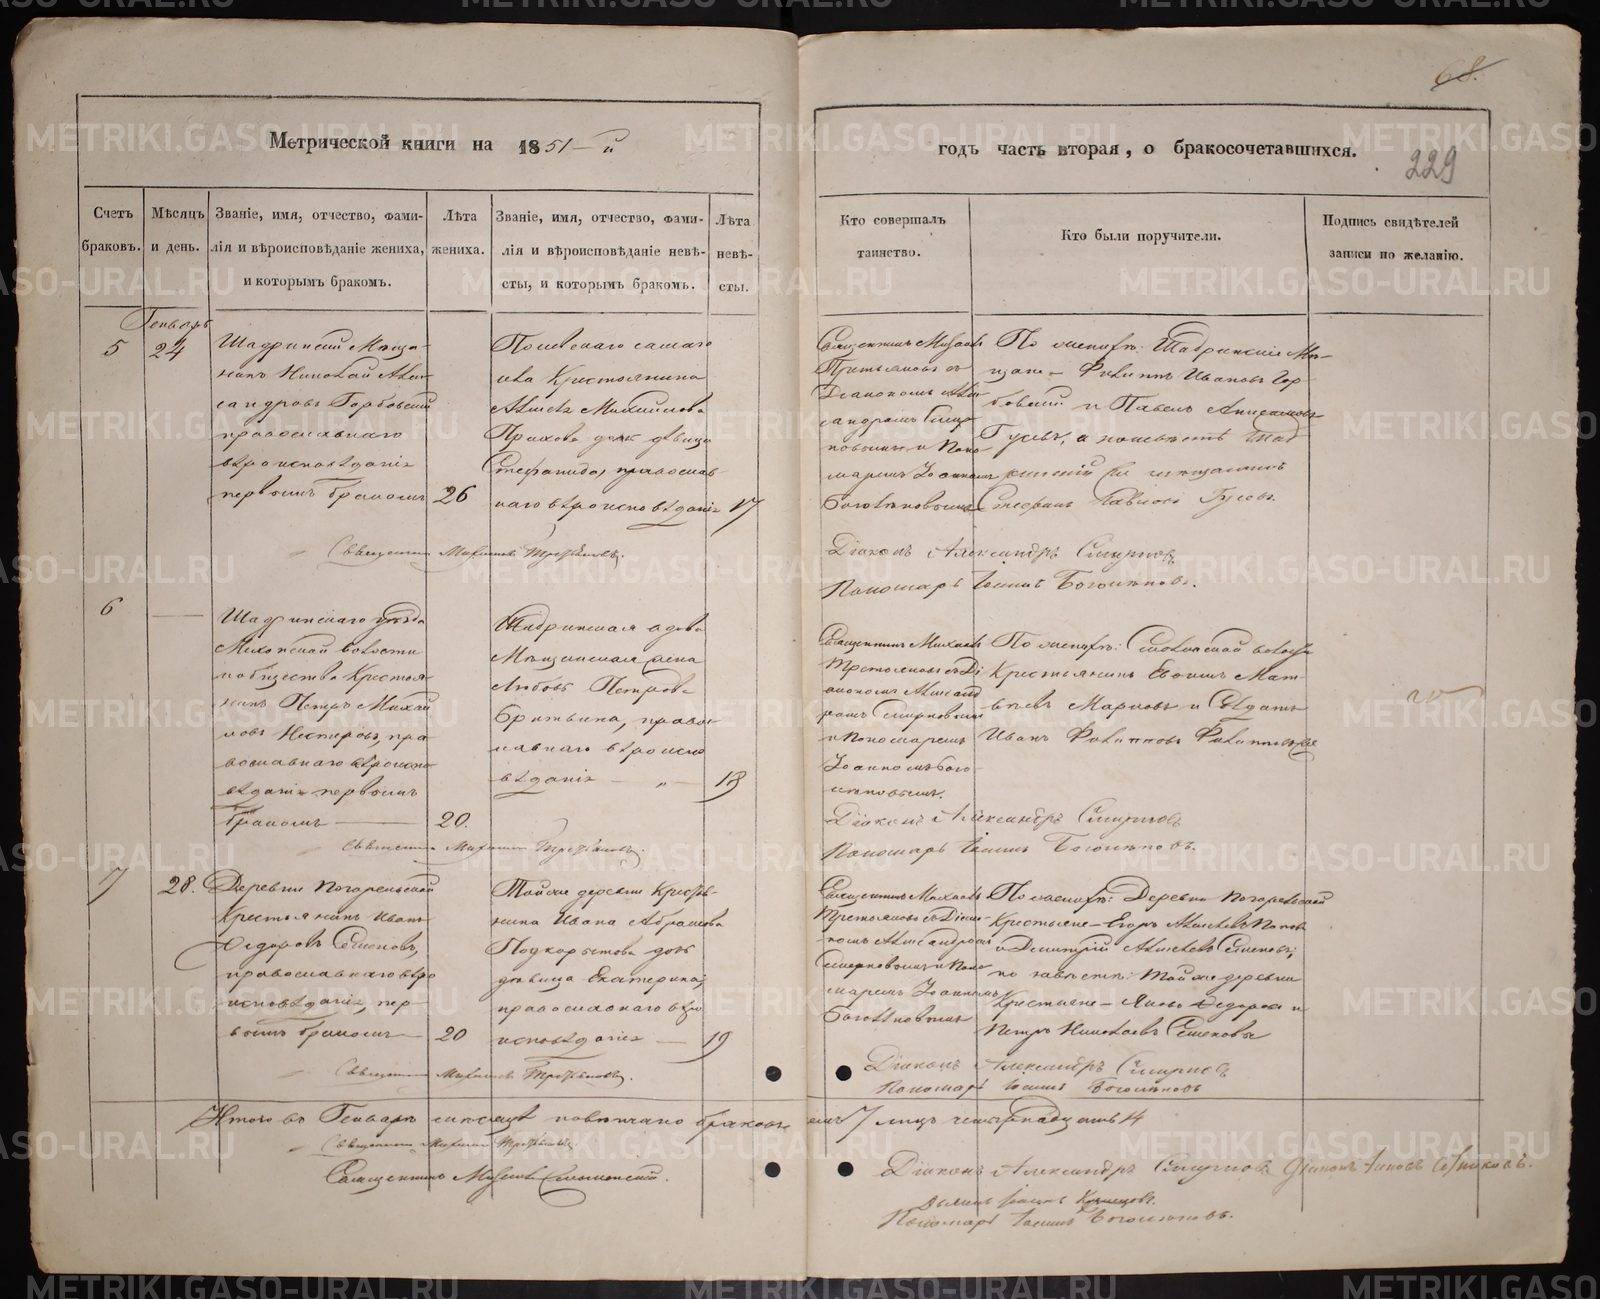 68.
Метрической книги на 1851-й
годъ часть вторая, о бракосочетавшихся.
229
Счетъ браковъ.
Мѣсяцъ и день.
Званіе, имя, отчество, фами-
лія и вѣроисповѣданіе жениха,
и которымъ бракомъ.
Лѣта жениха.
Званіе, имя, отчество, фами-
лія и вѣроисповѣданіе невѣ-
сты, и которымъ бракомъ.
Лѣта невѣ-
сты.
Кто совершалъ
таинство.
Кто были поручители.
Подпись свидѣтелей
записи по желанію.
Генварь
5
24
Шадринскій Мѣща-
нинъ Николай Алек-
сандровъ Горбовскій
православнаго
вѣроисповѣданія
первымъ бракомъ
26
Крестьянина
Алексѣя Михайлова
дочь дѣвица
Стефанида, православ-
наго вѣроисповѣданія
17
Священникъ Михаилъ
Третьяковъ съ
Діакономъ Алек-
сандромъ Смир-
новымъ и Поно-
маремъ Іоанномъ
Боголѣповымъ
По женихѣ: Шадринскіе Мѣ-
щане Филиппъ Ивановъ Гор-
бовскій и Павелъ
Гусевъ, а по невѣстѣ Шад-
мѣщанинъ
Стефанъ Павловъ Гусевъ.
Священникъ Михаилъ Третьяковъ.
Діаконъ Александръ Смирновъ
Пономарь Іоаннъ Боголѣповъ.
6
Шадринскаго уѣзда
волости
общества Крестья-
нинъ Петръ Михай-
ловъ Нестеровъ, пра-
вославнаго вѣроиспо-
вѣданія первымъ
бракомъ
20.
Шадринская вдова
Мѣщанская жена
Любовь Петрова
Бритвина, право-
славнаго вѣроиспо-
вѣданія
18
Священникъ Михаилъ
Третьяковъ съ Ді-
акономъ Александ-
ромъ Смирновымъ
и Пономаремъ
Іоанномъ Бого-
лѣповымъ.
По женихѣ: волости
Крестьянинъ Евфимъ Мат-
вѣевъ Марковъ и Солдатъ
Иванъ Филипповъ
Священникъ Михаилъ Третьяковъ.
Діаконъ Александръ Смирновъ
Пономарь Іоаннъ Боголѣповъ.
7
28.
Деревни Погорѣльской
Крестьянинъ Иванъ
Ѳедоровъ Семеновъ,
православнаго вѣро-
исповѣданія, пер-
вымъ бракомъ
20
Той же деревни Крестья-
нина Ивана Абрамова
Подкорытова дочь
дѣвица Екатерина,
православнаго вѣро-
исповѣданія
19
Священникъ Михаилъ
Третьяковъ съ Діако-
номъ Александромъ
Смирновымъ и Поно-
маремъ Іоанномъ
Боголѣповымъ
По женихѣ: Деревни Погорѣльской
Крестьяне Егоръ Алексѣевъ Поповъ
и Дмитрій Алексѣевъ Семеновъ;
по невѣстѣ: Той же деревни
Крестьяне Яковъ Ѳедоровъ и
Петръ Николаевъ Семеновы
Священникъ Михаилъ Третьяковъ.
Діаконъ Александръ Смирновъ
Пономарь Іоаннъ Боголѣповъ
Итого въ Генварѣ мѣсяцѣ повѣнчано браковъ семь 7 лицъ четырнадцать 14
Священникъ Михаилъ Третьяковъ.
Священникъ
Діаконъ Александръ Смирновъ Діаконъ
Дьячекъ
Пономарь Іоаннъ Боголѣповъ.
METRIKI.GASO-URAL.RU